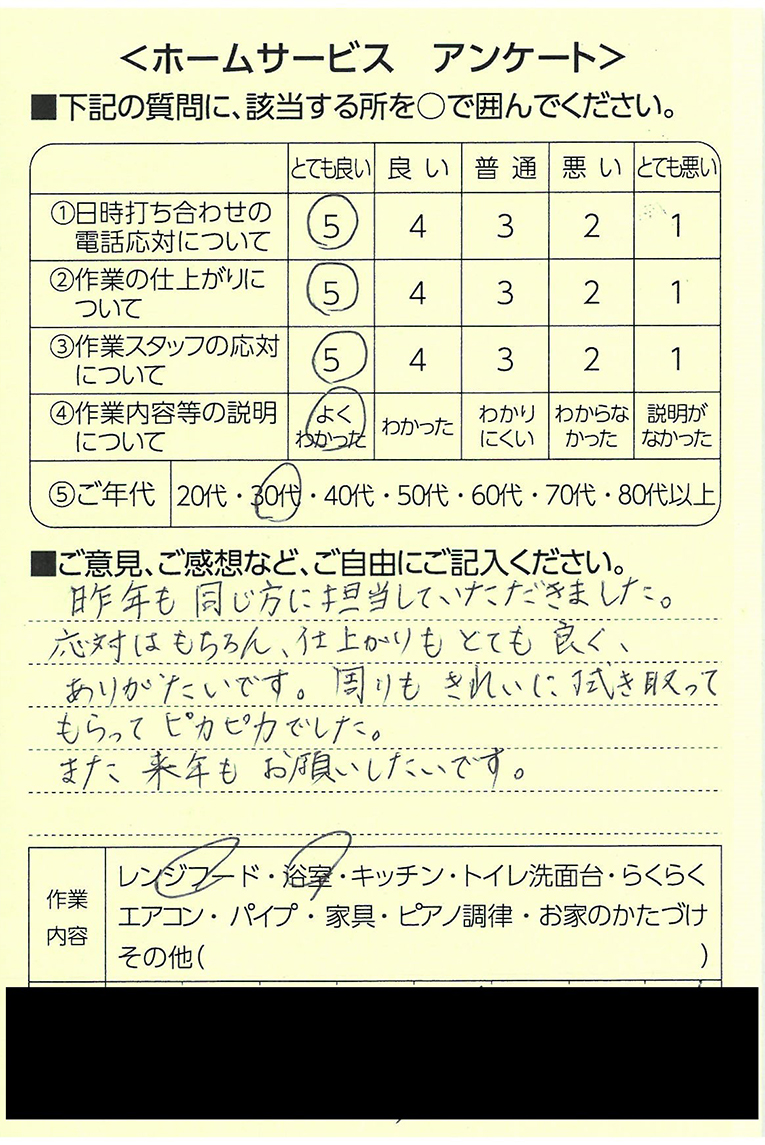 ＜ホームサービス　アンケート＞
■下記の質問に、該当する所を○で囲んでください。
とても良い 良い 普通 悪い とても悪い
①日時打ち合わせの
電話応対について 5 4 3 2 1
②作業の仕上がりに
ついて 5 4 3 2 1
③作業スタッフの応対
について 5 4 3 2 1
④作業内容等の説明
について よくわかった わかった わかりにくい わからなかった 説明がなかった
⑤ご年代 20代・30代・40代・50代・60代・70代・80代以上
■ご意見、ご感想など、ご自由にご記入ください。
昨年も同じ方に担当していただきました。
応対はもちろん、仕上がりもとても良く、
ありがたいです。周りもきれいに拭き取って
もらってピカピカでした。
また来年もお願いしたいです。
作業
内容
レンジフード・浴室・キッチン・トイレ洗面台・らくらく
エアコン・パイプ・家具・ピアノ調律・お家のかたづけ
その他(　　　)